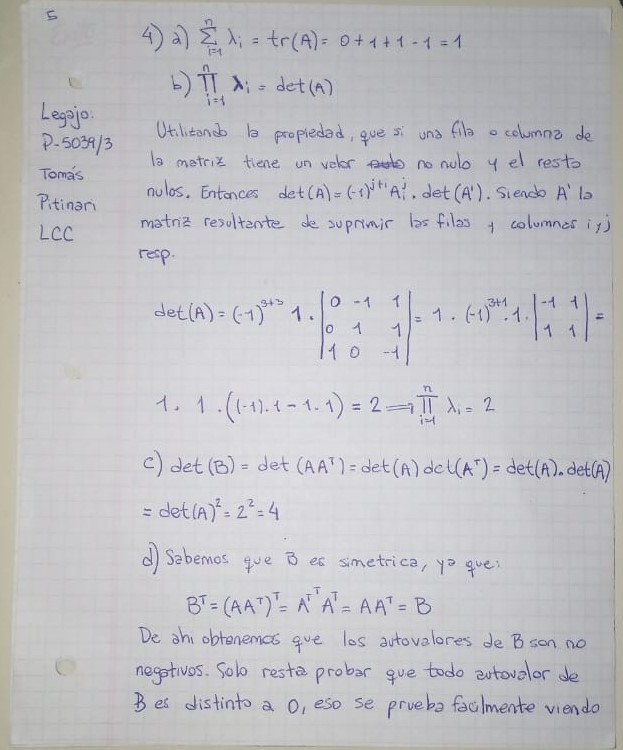 5
4) a) n∑i=1 λi = tr(A) = 0+1+1-1 = 1
b) n∏i=1 λi = det(A)
Legajo:
P-5039/3
Tomás
Pitinari
LCC
Utilizando la propiedad, que si una fila o columna de
la matriz tiene un valor no nulo y el resto
nulos. Entonces det(A) = (-1)^{j+i} A_i^j . det(A'). Siendo A' la
matriz resultante de suprimir las filas y columnas i y j
resp.
det(A) = (-1)^{3+3} 1 . |0 -1 1; 0 1 1; 1 0 -1| = 1 . (-1)^{3+1} . 1 . |-1 1; 1 1| =
1 . 1 . ((-1).1 - 1.1) = 2 ⟹ n∏i=1 λi = 2
c) det(B) = det(AA^T) = det(A) det(A^T) = det(A).det(A)
= det(A)² = 2² = 4
d) Sabemos que B es simetrica, ya que:
B^T = (AA^T)^T = A^{T^T} A^T = AA^T = B
De ahi obtenemos que los autovalores de B son no
negativos. Solo resta probar que todo autovalor de
B es distinto a 0, eso se prueba facilmente viendo